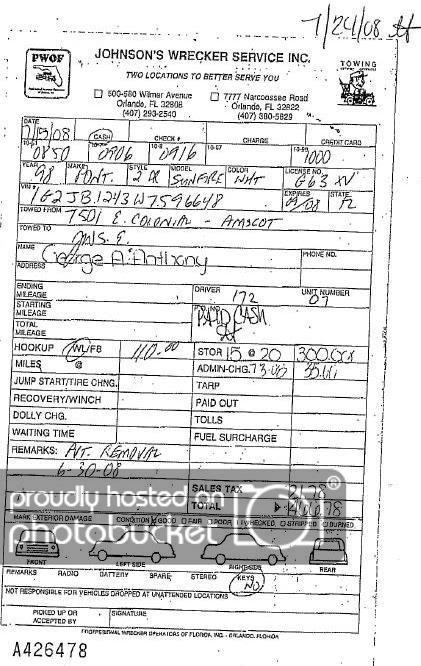 7/24/08
PWOF
JOHNSON'S WRECKER SERVICE INC.
TWO LOCATIONS TO BETTER SERVE YOU
TOWING
500-580 Wilmer Avenue
Orlando, FL 32808
(407) 293-2540
7777 Narcoossee Road
Orlando, FL 32822
(407) 380-5829
DATE 7/15/08
CASH
CHECK #
CHARGE
CREDIT CARD
10-51 0850
0906
10-8 0916
10-97
10-98 1000
YEAR 98
MAKE PONT.
STYLE 2 DR
MODEL SUNFIRE
COLOR WHT
LICENSE NO. G63 XV
VIN # 1G2JB1243W7596648
EXPIRES 09/08
STATE FL
TOWED FROM 7501 E. COLONIAL - AMSCOT
TOWED TO JWS. E.
NAME George A. Anthony
PHONE NO.
ADDRESS
ENDING MILEAGE
DRIVER 172
UNIT NUMBER 07
STARTING MILEAGE
PAID CASH
TOTAL MILEAGE
HOOKUP WL/FB 110.00
STOR 15 @ 20 300.00
MILES @
ADMIN-CHG.
JUMP START/TIRE CHNG.
TARP
RECOVERY/WINCH
PAID OUT
DOLLY CHG.
TOLLS
WAITING TIME
FUEL SURCHARGE
REMARKS: PVT. REMOVAL
6-30-08
SALES TAX
TOTAL
proudly hosted on
photobucket
MARK EXTERIOR DAMAGE
CONDITION GOOD FAIR POOR WRECKED STRIPPED BURNED
FRONT
LEFT SIDE
RIGHT SIDE
REAR
REMARKS RADIO BATTERY SPARE STEREO KEYS NO
NOT RESPONSIBLE FOR VEHICLES DROPPED AT UNATTENDED LOCATIONS
PICKED UP OR ACCEPTED BY
SIGNATURE
PROFESSIONAL WRECKER OPERATORS OF FLORIDA, INC. - ORLANDO, FLORIDA
A426478